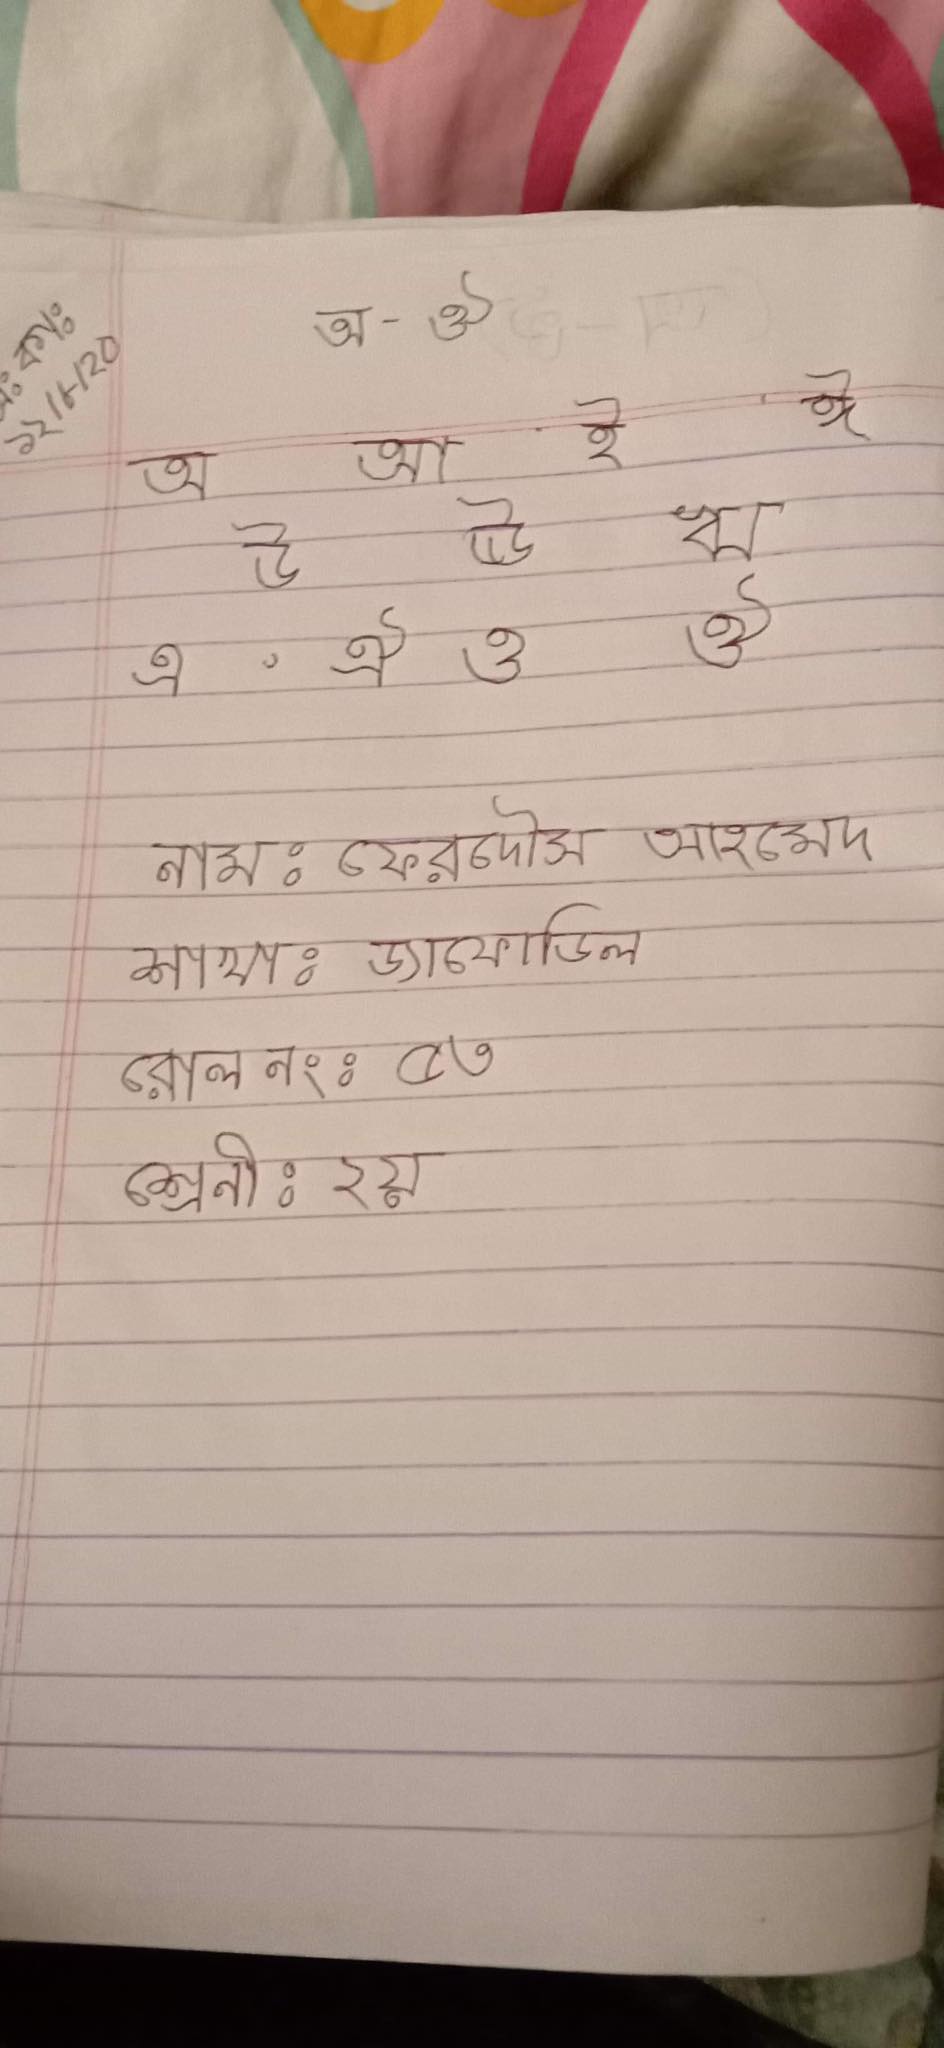 কাঃ
অ - ঔ
অ আ ই ঈ
উ ঊ ঋ
এ ঐ ও ঔ
নামঃ ফেরদৌস আহমেদ
শাখাঃ ড্যাফোডিল
রোল নংঃ ৫৩
শ্রেনীঃ ২য়